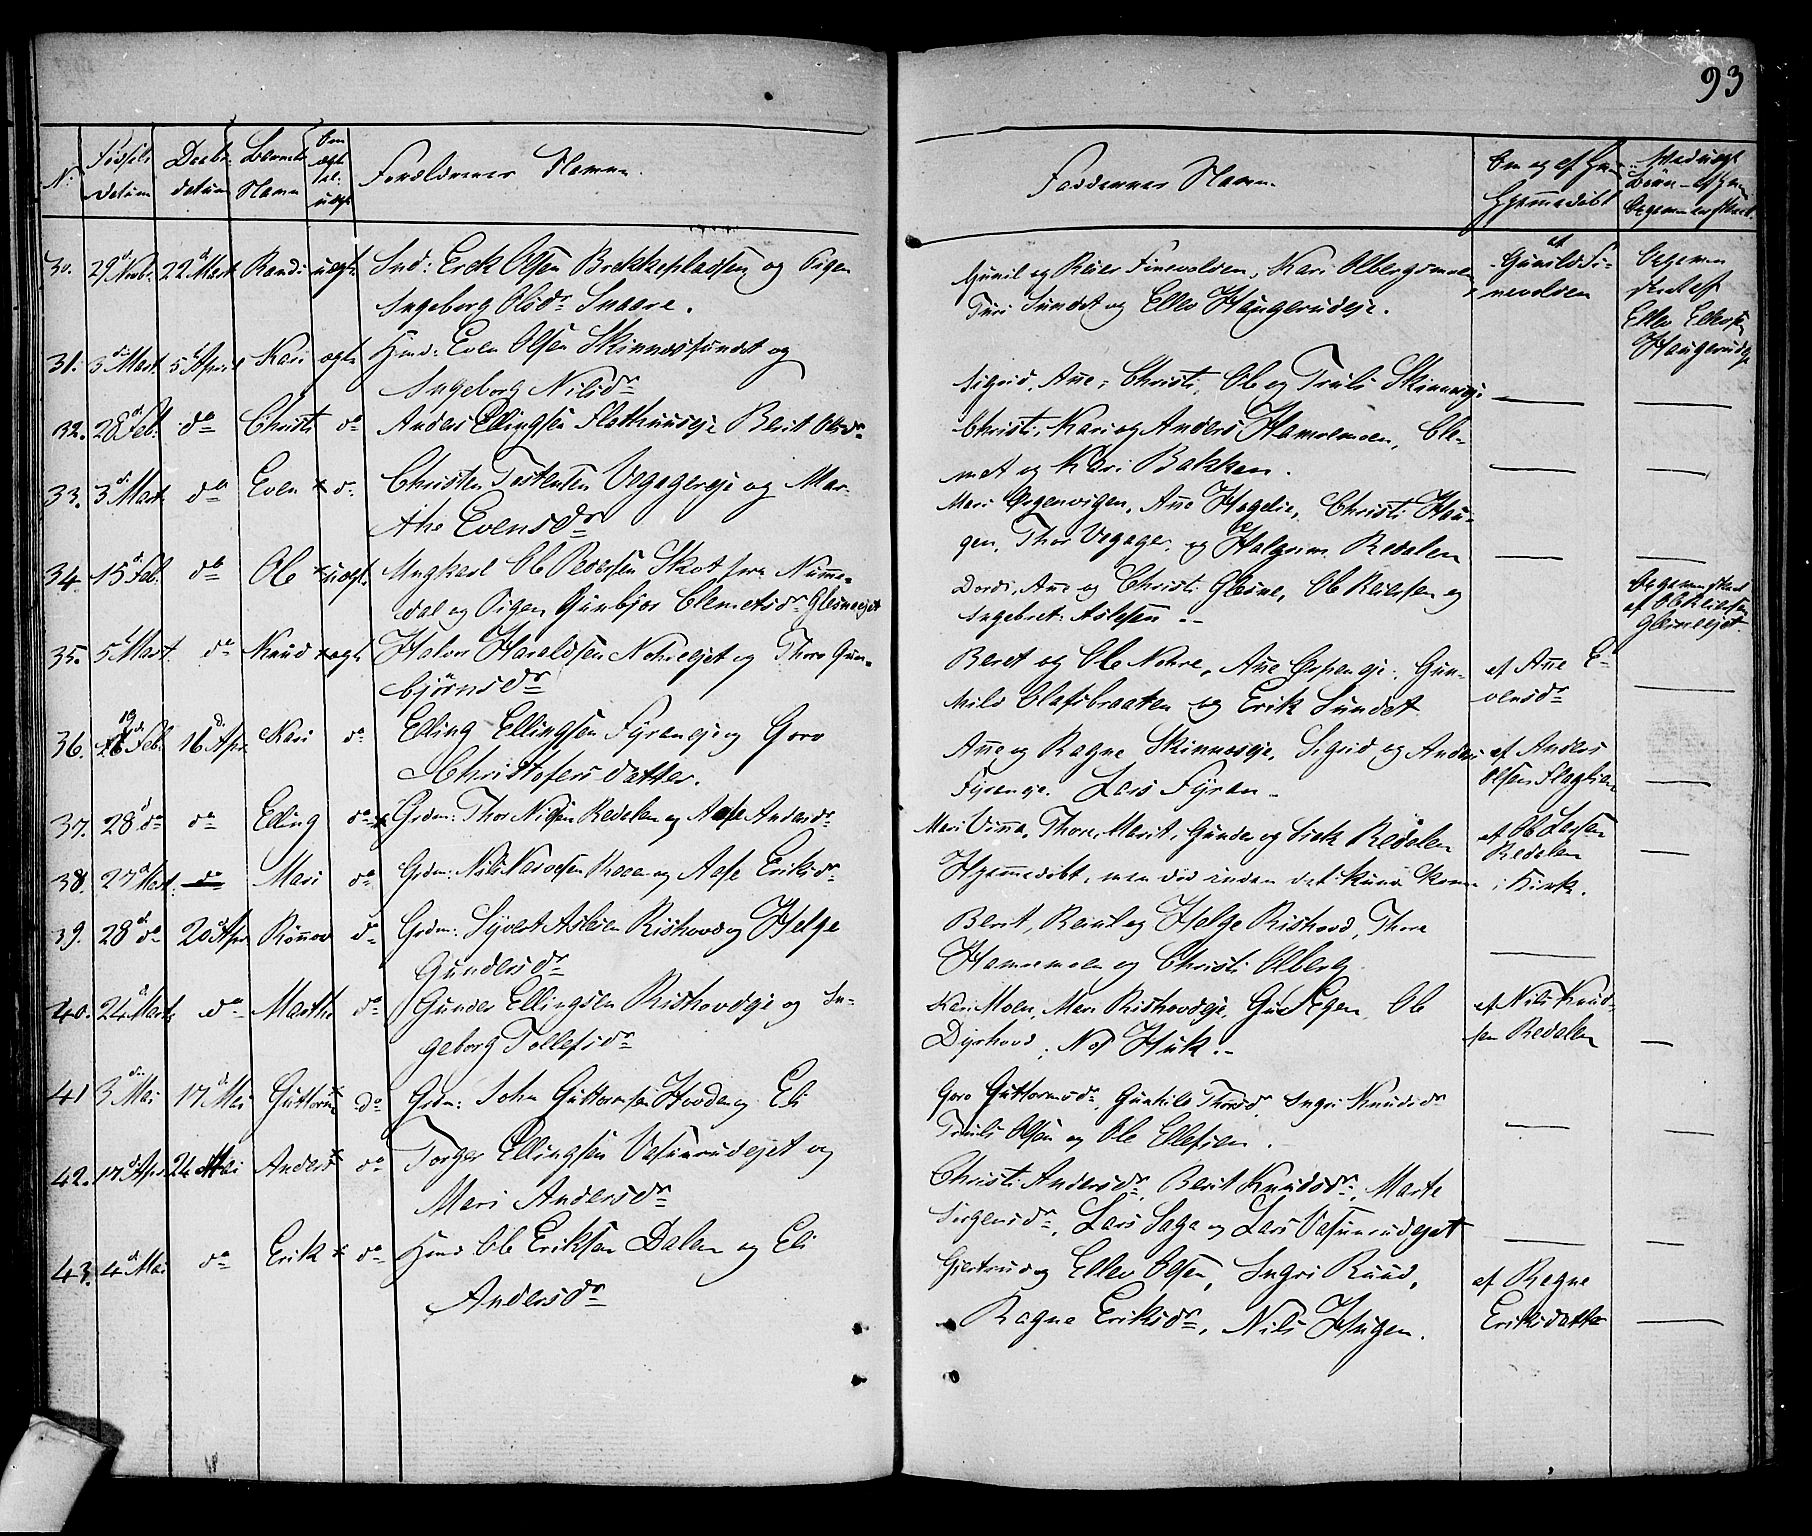 93
N.
Fødsels
datum
Daabs
datum
Barnets
Navn
Om
ægte
el.
uægt.
Forældrenes Navne.
Faddernes Navne
Om og af hvem
Hjemmedøbt
Ved uægte
Børn - af hvem
begjæmmenstret
30. 29 d. Novb. 22 d. Marts Randi uægte Ind: Erek Olsen Brekkepladsen og Pigen
Ingeborg Olsdr Snaare.
Gunil og Reier Finevolden, Kari Olbergsmoen
Turi Sundet og Ellev Haugerudeje.
af
Gunild Fi-
nevolden
Ellev Ellevsen
Haugerudeje
31. 3 d. Mart. 5 d. April Kari ægte Hmd: Even Olsen Skinnessundet og
Ingeborg Nilsdr
Sigrid, Ane, Christi, Ole og Truls Skinnesje
32. 28 d. Feb. do Christi do Anders Ellingsen Slethuuseje Berit Olsdr
Christi, Kari og Anders Hamremoen, Cle-
met og Kari Bakken.
33. 3 d. Mart do Even x do Christen Tostensen Vegagereje og Mar-
the Evensdr
Mari Espenvigen, Ane Hagelie, Christi Hau-
gen, Thor Vegager, og Halgrim Redalen
34. 15 d. Feb. do Ole x uægt. Ungkarl Ole Pedersen Skot fra Numme-
dal og Pigen Gunbjør Clemetsdr Glesneejet
Dordi, Ane og Christi Glesne, Ole Reiersen og
Ingebret Aslesen
af Ole Reiersen
Glesneejet
35. 5 d. Mart. do Knud x ægte Halvor Haraldsen Nohreejet og Thore Gun-
bjørnsdr
Beret og Ole Nohre, Ane Espeneje, Gun-
hild Olafsbraaten og Erik Sundet
af Ane E-
vensdr
36. 19 d. Feb. 16 d. Apr. Kari do Elling Ellingsen Fyraneje og Goro
Christofers datter.
Ane og Ragne Skinneseje, Sigrid og Anders
Fyraneje. Lars Fyran.
af Anders
Olsen Slagtern
37. 28 d. do do Elling do x Grdm: Thor Nilsen Redalen og Aase Andersdr
Mari Vinna, Thore, Marit, Gunder og Eirik Redalen
af Ole Larsen
Redalen
38. 27 d. Mart. do Mari do Grdm: Nils Narvesen Raaen og Aase Eriksdr
Hjemmedøbt, men død inden det kunde komme i Kirk.
39. 28 d. do 20 d. Apr Rønnov do Grdm: Syvert Aslesen Rishovd og Helge
Gundersdr
Berit, Beret og Helge Rishovd, Thore
Hamremoen og Christi Olberg
40. 24 d. Marts do Marthe do Gunder Ellingsen Rishovdeje og In-
geborg Tollefsdr
Kari Moen, Mari Rishovdeje, Ole
Dyrhovd, Huk.
af Nils Knud-
sen Redalen
41 3 d. Mai 17 d. Mai Guttorm x do Grdm: John Guttormsen Hovde og Eli
Goro Guttormsdr, Gunhild Thorsd. Ingri Knudsdr
Truls Olsen og Ole Ellefsen.
42. 17 d. Apr. 24 Mai Anders x do Torger Ellingsen Vasunrudejet og
Mari Andersdr
Christi Andersdr, Berit Knudsdr, Marte
Jørgensdr, Lars Saga og Lars Vasunrudejet
43. 4 d. Mai do Erik x do Hmd Ole Eriksen Dalen og Eli
Andersdr
Giertrud og Ellev Olsen, Ingri Ruud,
Ragne Eriksdr, Nils Haugen.
af Ragne
Eriksdatter